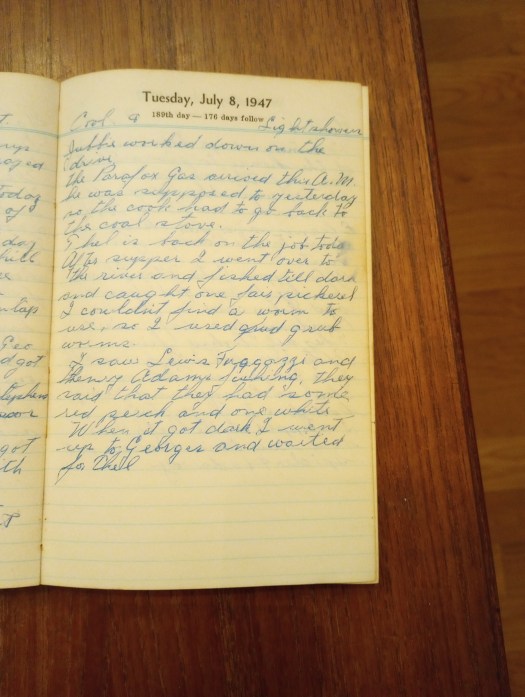 Tuesday, July 8, 1947
189th day — 176 days follow
Cool & Light showers
worked down on the
drive.
the Gas arrived this A.M.
he was supposed to yesterday
so, the cook had to go back to
the coal stove.
is back on the job today
After supper I went over to
the river and fished till dark
and caught one fair pickerel
I couldn't find a worm to
use, so I used grub
worms.
I saw Lewis and
Henry Adams fishing, they
said that they had some
red perch and one white
When it got dark I went
up to Georges and waited
for
today
of
day
Geo
got
got